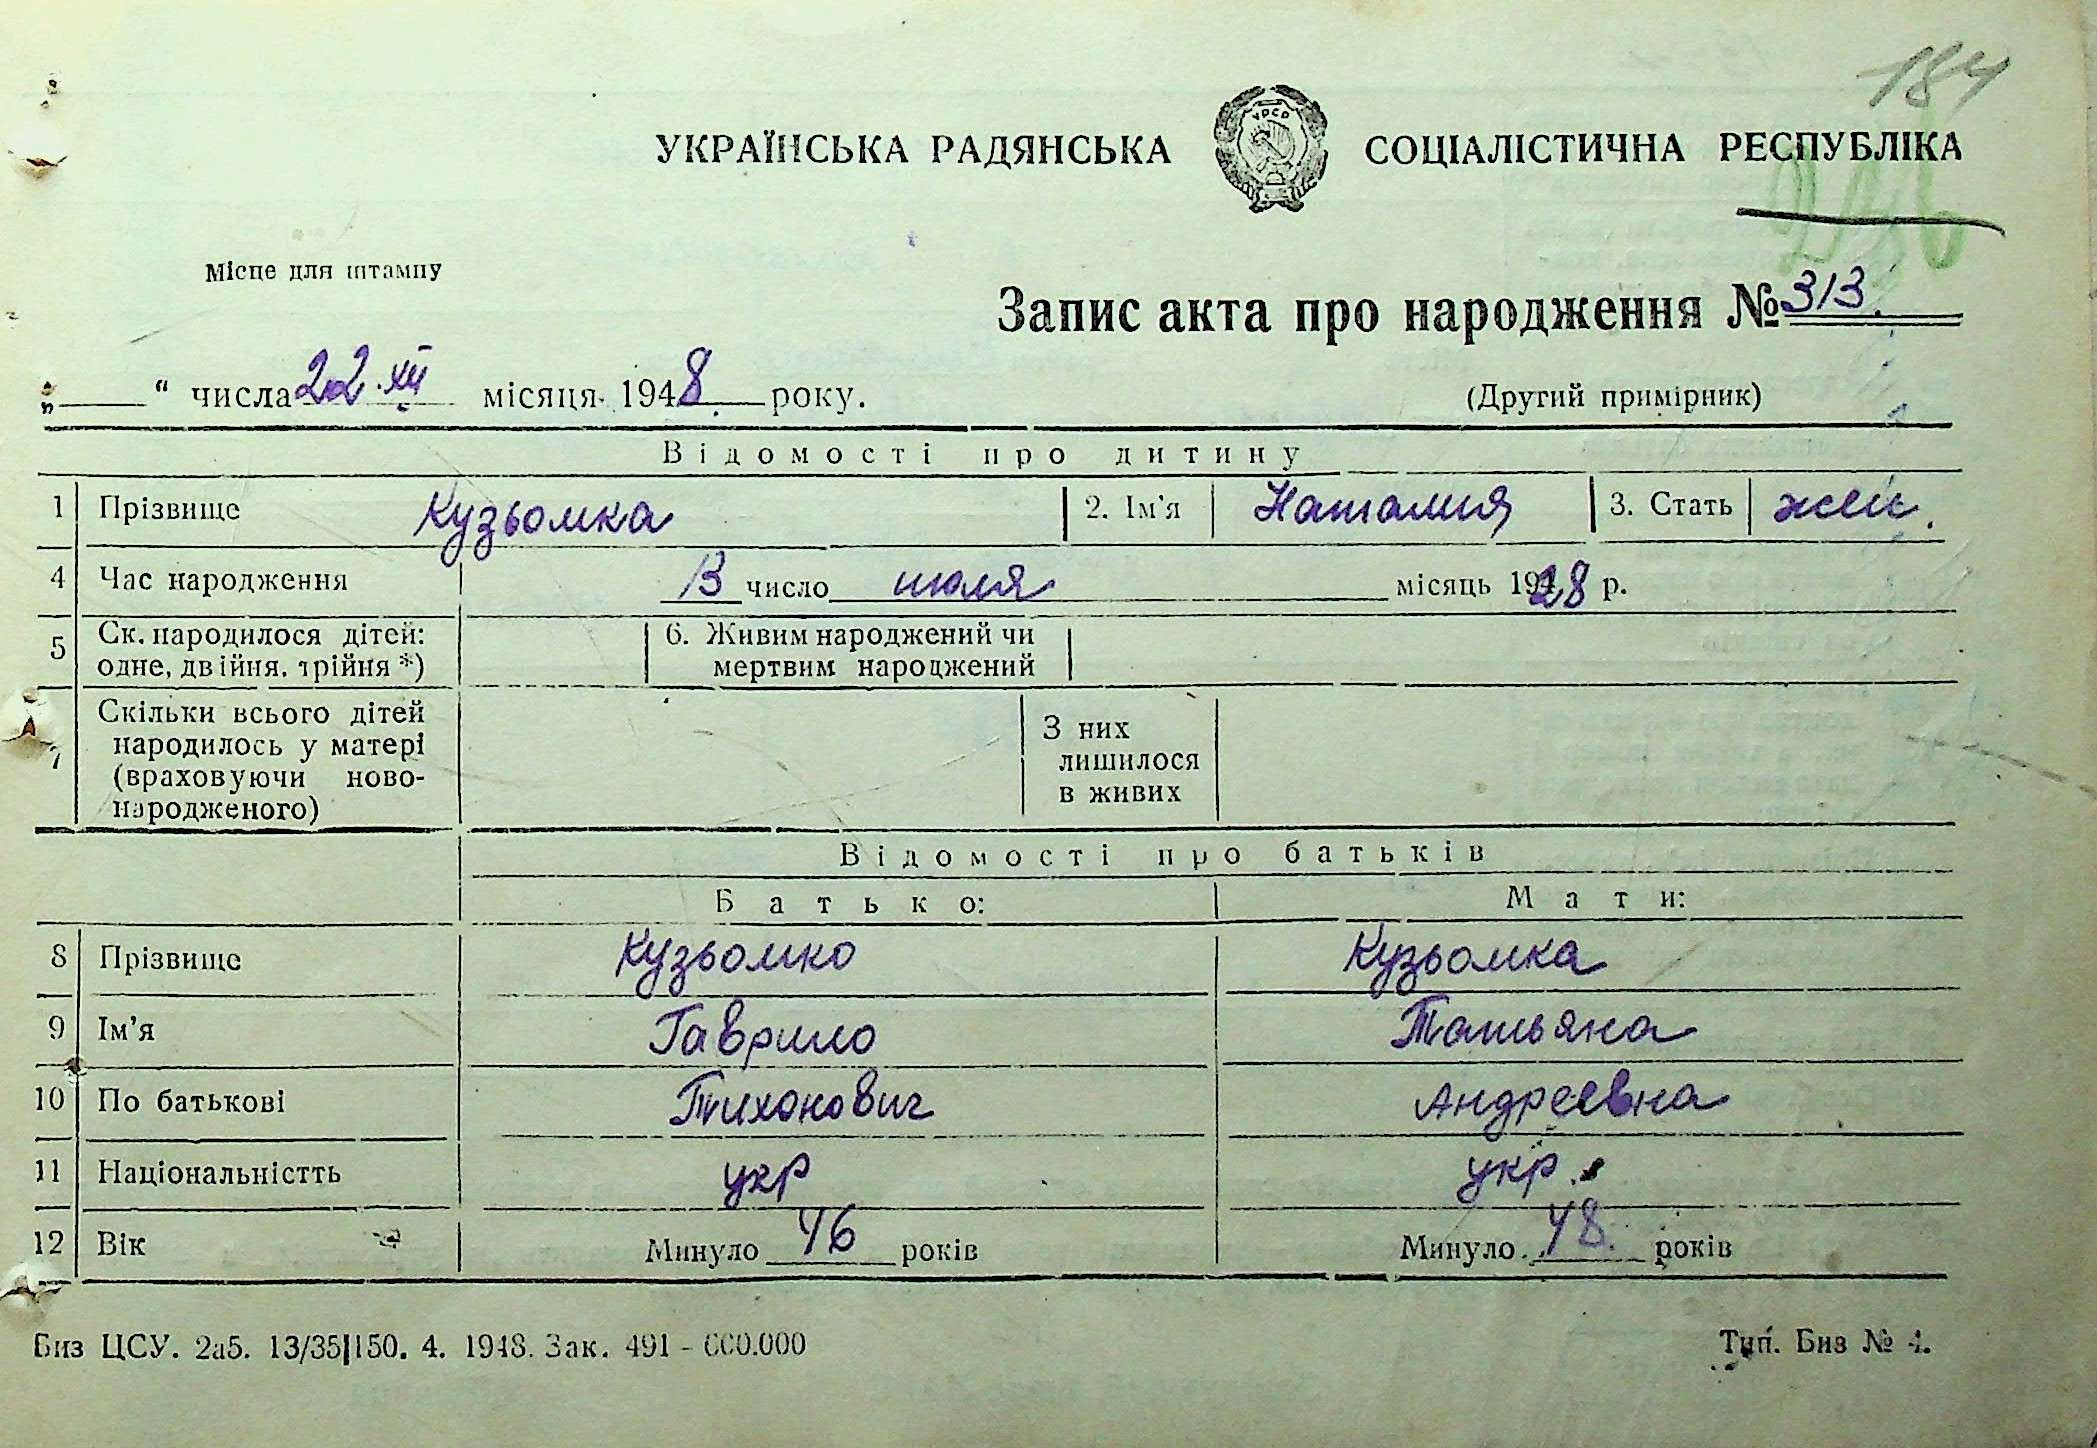 184
УКРАЇНСЬКА РАДЯНСЬКА СОЦІАЛІСТИЧНА РЕСПУБЛІКА
УРСР
Місце для штампу
Запис акта про народження № 313.
„ “ числа 22.XII місяця 1948 року. (Другий примірник)
Відомості про дитину
1 Прізвище Кузьомка 2. Ім’я Наталия 3. Стать жен.
4 Час народження 13 число июля місяць 1928 р.
5 Ск. народилося дітей: 6. Живим народжений чи
одне, двійня, трійня *) мертвим народжений
7 Скільки всього дітей З них
народилось у матері лишилося
(враховуючи ново- в живих
народженого)
Відомості про батьків
Батько: Мати:
8 Прізвище Кузьомко Кузьомка
9 Ім’я Гаврило Татьяна
10 По батькові Тихонович Андреевна
11 Національністть укр укр.
12 Вік Минуло 46 років Минуло 48. років
Биз ЦСУ. 2а5. 13/35|150. 4. 1948. Зак. 491 - 600.000 Тип. Биз № 4.